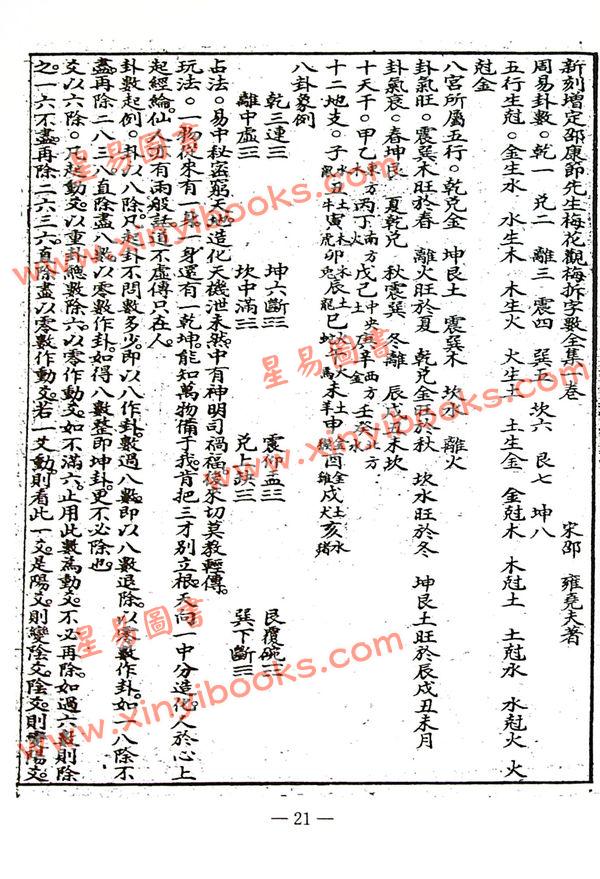 新刻增定邵康節先生梅花觀梅拆字數全集 卷　宋邵　雍堯夫著
周易卦數。乾一　兌二　離三　震四　巽五　坎六　艮七　坤八
五行生尅。金生水　水生木　木生火　火生土　土生金　金尅木　木尅土　土尅水　水尅火　火
尅金
八宮所屬五行。乾兌金　坤艮土　震巽木　坎水　離火
卦氣旺。震巽木旺於春　離火旺於夏　乾兌金旺於秋　坎水旺於冬　坤艮土旺於辰戌丑未月
卦氣衰。春坤艮　夏乾兌　秋震巽　冬離　辰戌丑未坎
十天干。甲乙東方木丙丁南方火戊己中央土庚辛西方金壬癸北方水
十二地支。子水鼠丑土牛寅木虎卯木兔辰土龍巳火蛇午火馬未土羊申金猴酉金雞戌土犬亥水豬
八卦象例
乾三連☰　坤六斷☷　震仰盂☳　艮覆碗☶
離中虛☲　坎中滿☵　兌上缺☱　巽下斷☴
占法。易中秘密窮天地。造化天機泄未然。中有神明司禍福。從來切莫教輕傳。
玩法。一物從來有一身。一身還有一乾坤。能知萬物備于我。肯把三才別立根。天向一中分造化。人於心上
起經綸。仙人亦有兩般話。道不虛傳只在人。
卦數起例。卦以八除。凡起卦不問數多少。即以八作卦數。過八數即以八數退除。以零數作卦。如一八除不
盡再除二八三八直除盡八數。以零數作卦。如得八數整即坤卦。更不必除也。
爻以六除。凡起動爻以重卦總數除六。以零作動爻。如不滿六。止用此數為動爻。不必再除。如過六數則除
之。一六不盡再除二六三六直除盡。以零數作動爻。若一爻動則看此一爻。是陽爻則變陰爻。陰爻則變陽爻。
— 21 —
星易圖書
www.xinyibooks.com
星易圖書
www.xinyibooks.com
星易圖書
www.xinyibooks.com